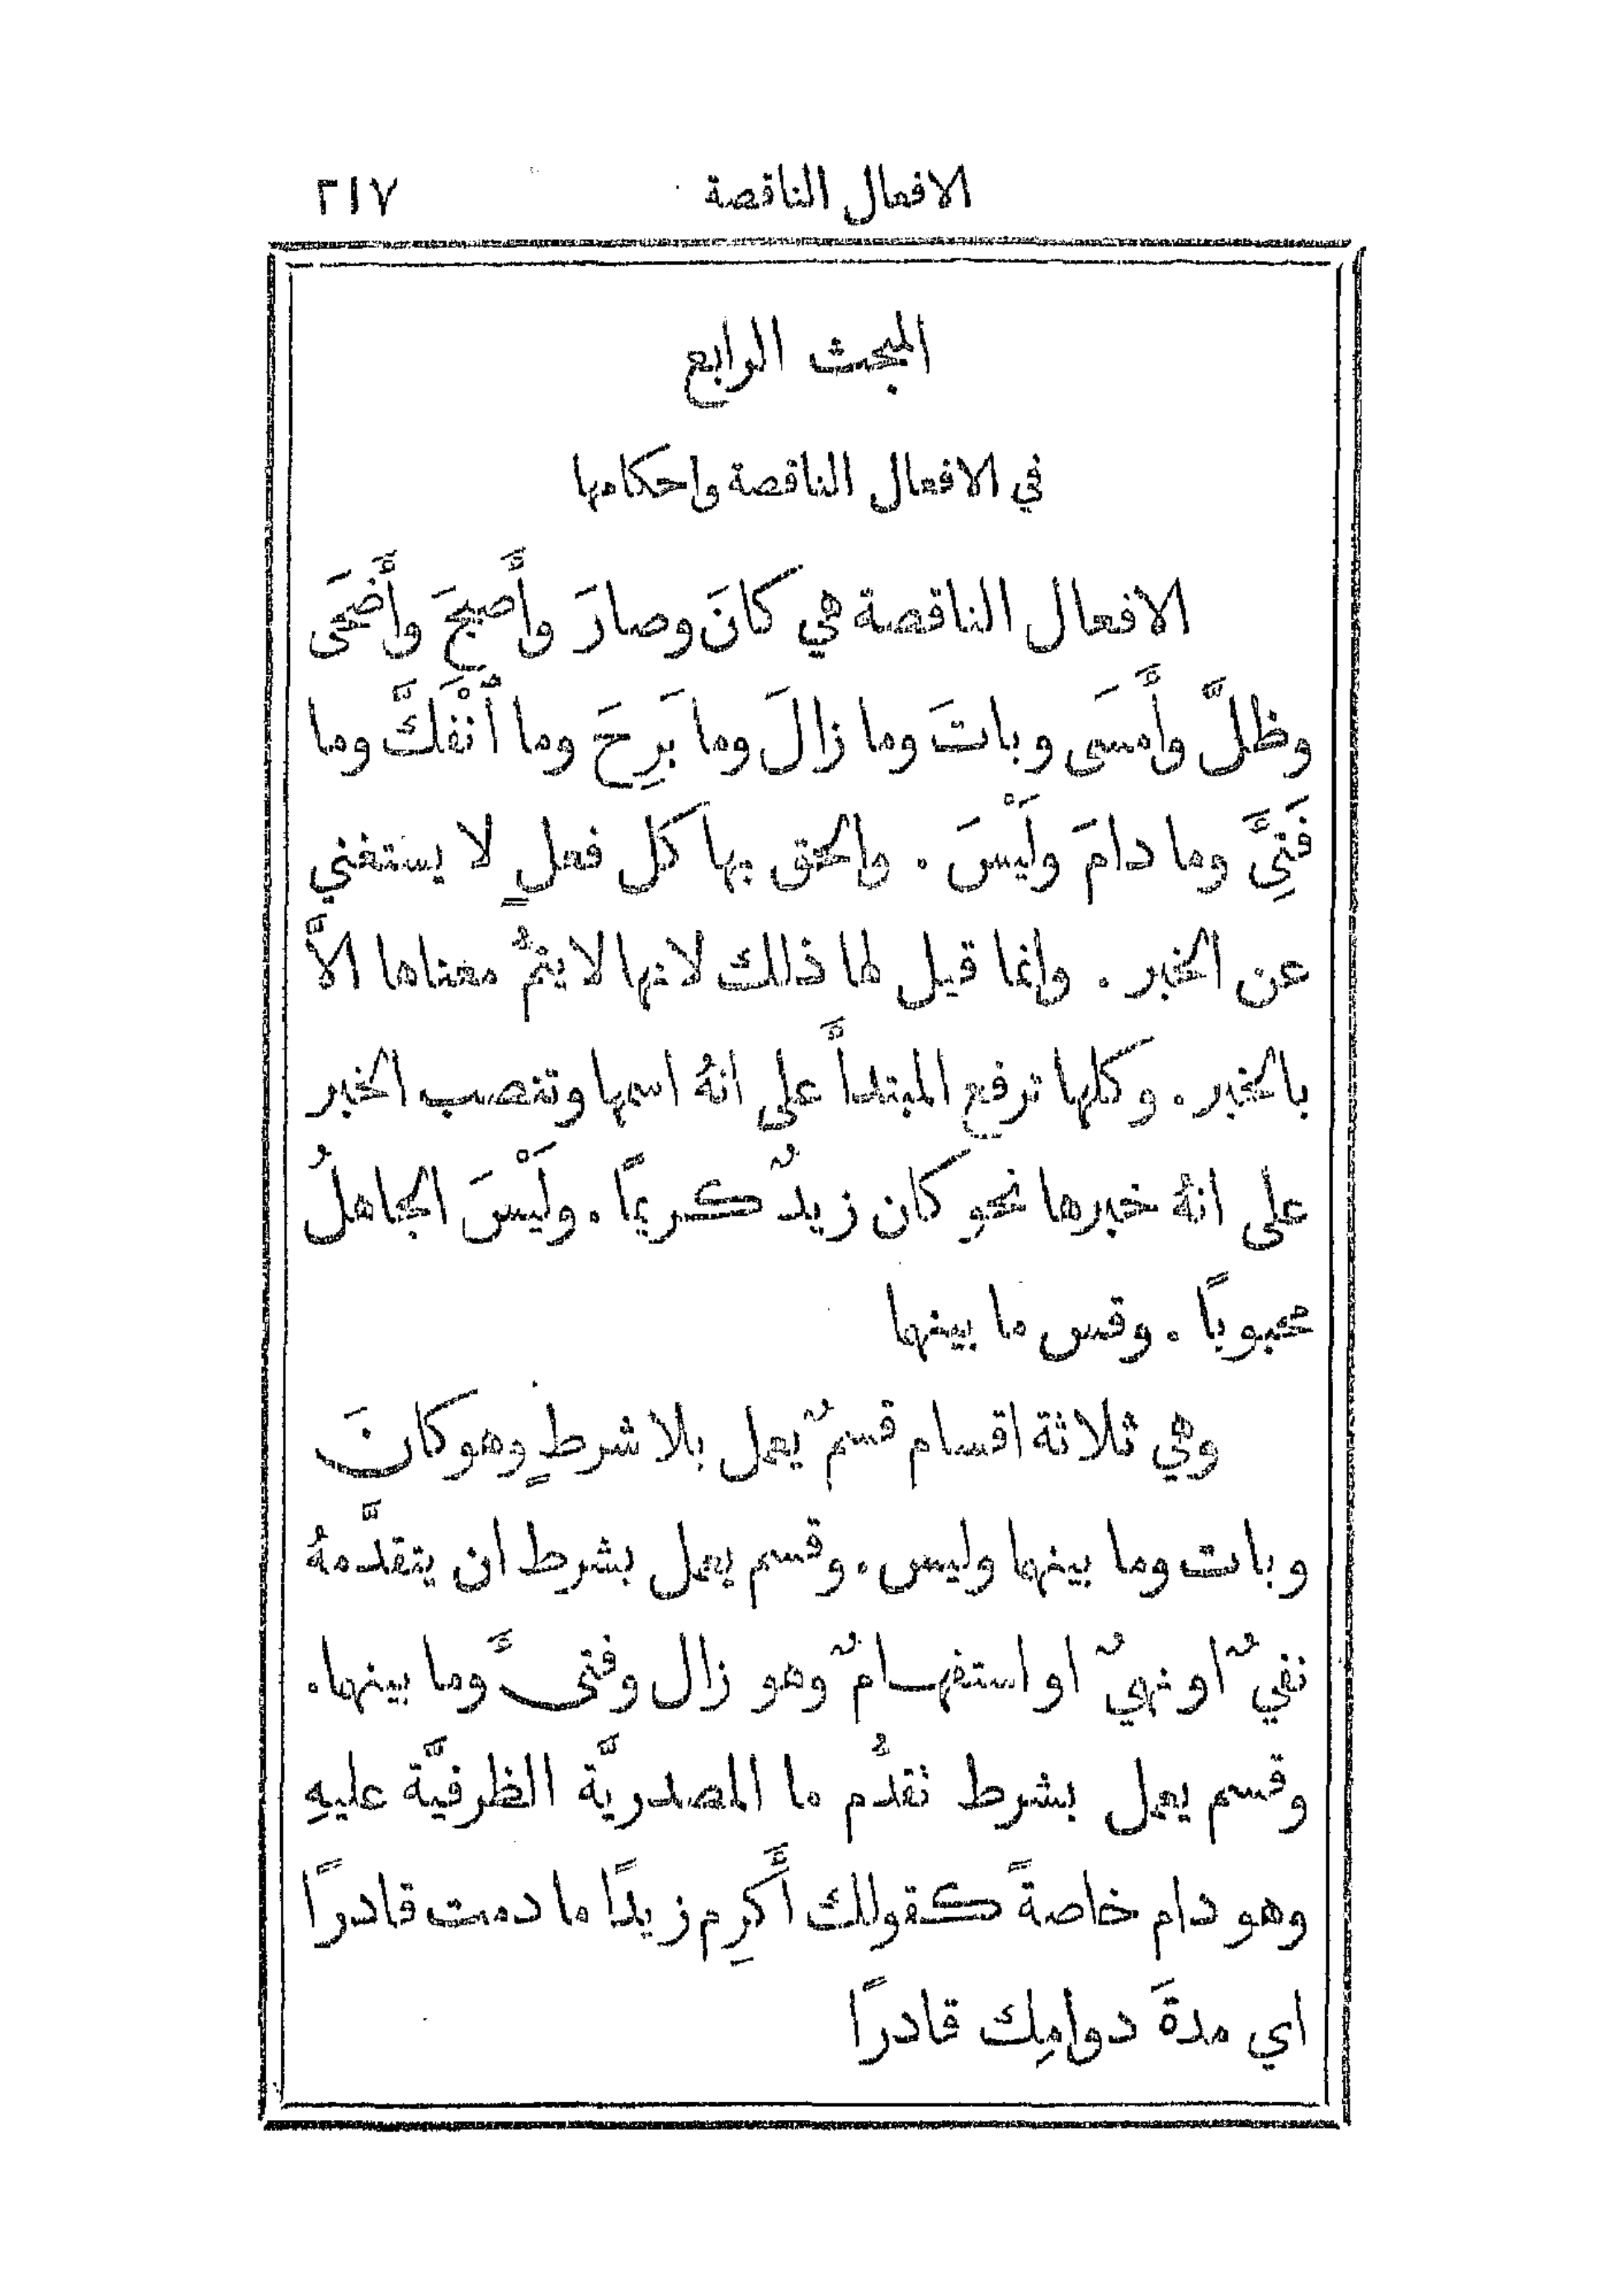 الافعال الناقصة ٢١٧
المبحث الرابع
في الافعال الناقصة واحكامها
الافعال الناقصة هي كانَ وصارَ وأَصبحَ وأَضحَى
وظلَّ وأَمسَى وباتَ وما زالَ وما بَرِحَ وما ٱنْفَكَّ وما
فَتِئَ وما دامَ ولَيْسَ . والحق بها كل فعلٍ لا يستغني
عن الخبر . وانما قيل لها ذلك لانها لا يتمُّ معناها الاَّ
بالخبر . وكلها ترفع المبتدأَ على انهُ اسمها وتنصب الخبر
على انهُ خبرها نحو كان زيدٌ كريمًا . ولَيْسَ الجاهلُ
محبوبًا . وقس ما بينها
وهي ثلاثة اقسام قسمٌ يعمل بلا شرطٍ وهو كانَ
وبات وما بينهما وليس . وقسم يعمل بشرط ان يتقدَّمهُ
نفيٌ او نهيٌ او استفهامٌ وهو زال وفتىءَ وما بينهما .
وقسم يعمل بشرط تقدُّم ما المصدريَّة الظرفيَّة عليهِ
وهو دام خاصةً كقولك أَكرِم زيدًا ما دمت قادرًا
اي مدةَ دوامِك قادرًا